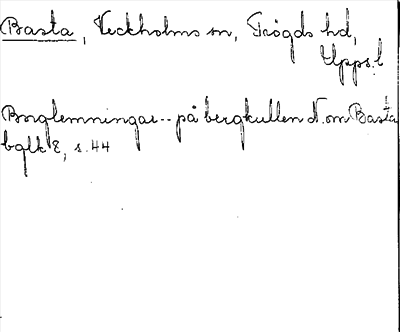 Basta, Veckholms sn, Trögds hd,
Upps. l
Borglemningar -- på bergkullen N. om Basta
bglk E, s. 44